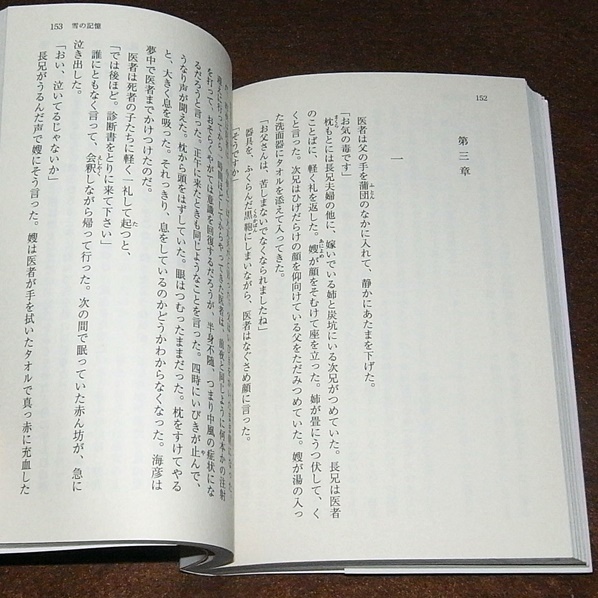 152
第三章
一
医者は父の手を蒲団のなかに入れて、静かにあたまを下げた。
「お気の毒です」
枕もとには長兄夫婦の他に、嫁いでいる姉と炭坑にいる次兄がつめていた。長兄は医者
のことばに、軽く礼を返した。嫂が顔をそむけて座を立った。姉が畳にうつ伏して、く
くと言った。次兄はひげだらけの顔を仰向けている父をただみつめていた。嫂が湯の入っ
た洗面器にタオルを添えて入ってきた。
「お父さんは、苦しまないでなくなられましたね」
器具を、ふくらんだ黒鞄にしまいながら、医者はなぐさめ顔に言った。
「そうですか」
153 雪の記憶
を行って、おそらくやがては意識を回復するだろうが、半身不随、つまり中風の症状にな
るだろうと言った。正午に来たときも同じようなことを言った。四時にいびきが止んで、
うなり声が聞えた。枕から頭をはずしていた。眼はつむったままだった。枕をすけてやる
と、大きく息を吸った。それっきり、息をしているのかどうかわからなくなった。海彦は
夢中で医者までかけつけたのだ。
医者は死者の子たちに軽く一礼して起つと、
「では後ほど。診断書をとりに来て下さい」
誰にともなく言って、会釈しながら帰って行った。次の間で眠っていた赤ん坊が、急に
泣き出した。
「おい、泣いてるじゃないか」
長兄がうるんだ声で嫂にそう言った。嫂は医者が手を拭いたタオルで真っ赤に充血した